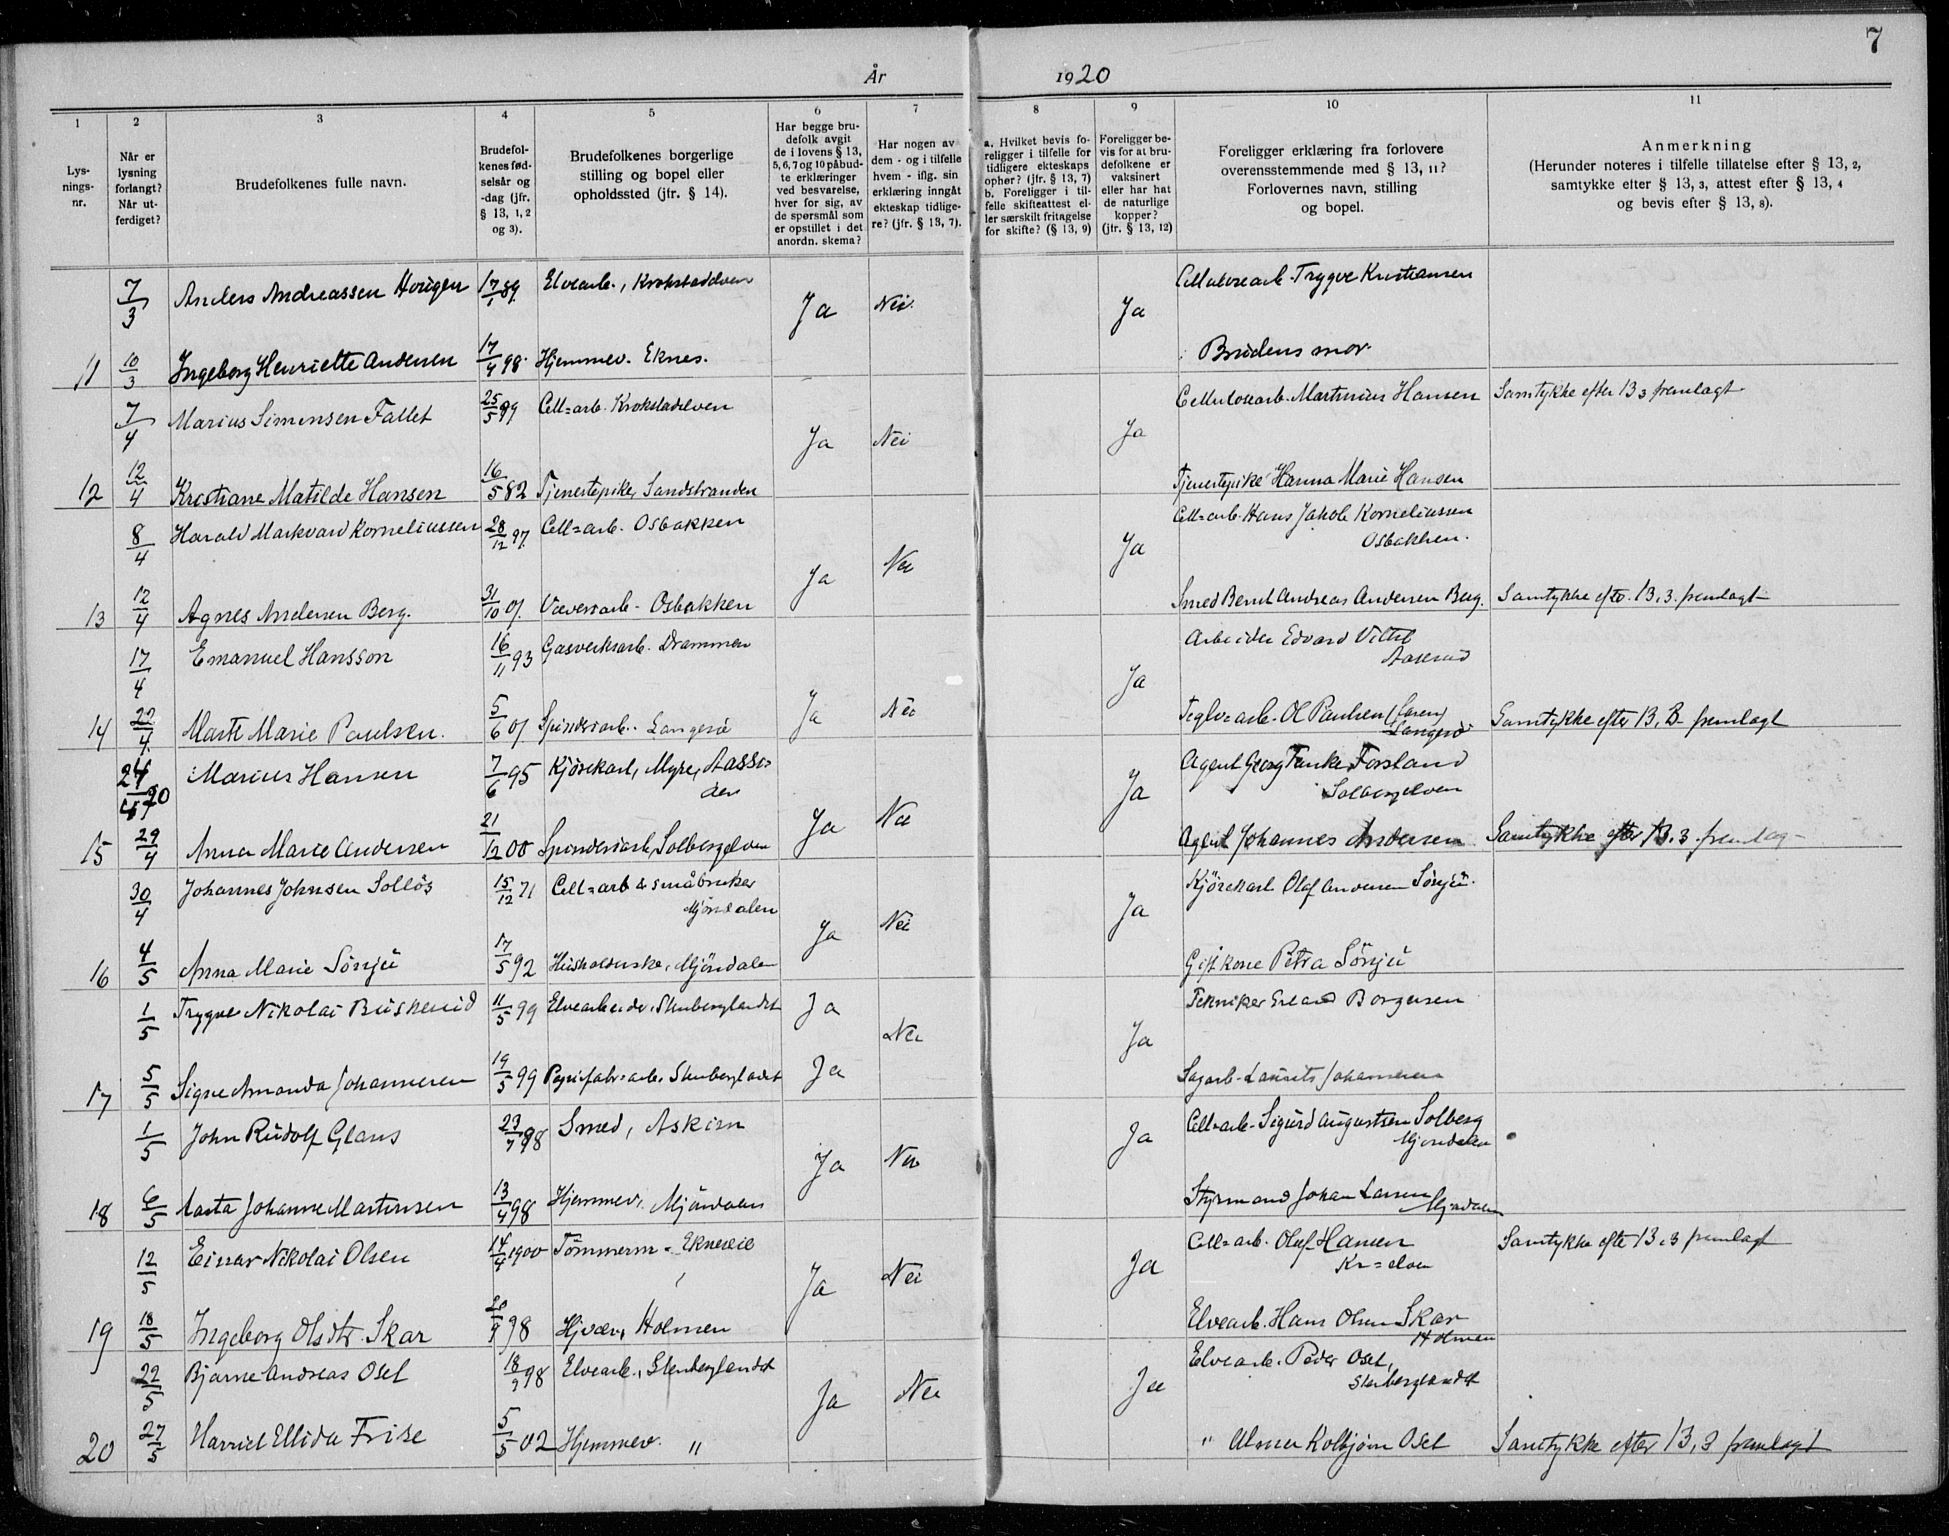 7
År 1920
1 2 3 4 5 6 7 8 9 10 11
Lys-
nings-
nr.
Når er
lysning
forlangt?
Når ut-
ferdiget?
Brudefolkenes fulle navn.
Brudefol-
kenes fød-
selsår og
-dag (jfr.
§ 13, 1, 2
og 3).
Brudefolkenes borgerlige
stilling og bopel eller
opholdssted (jfr. § 14).
Har begge bru-
defolk avgit
de i lovens § 13,
5, 6, 7 og 10 påbud-
te erklæringer
ved besvarelse,
hver for sig, av
de spørsmål som
er opstillet i det
anordn. skema?
Har nogen av
dem - og i tilfelle
hvem - iflg. sin
erklæring inngåt
ekteskap tidlige-
re? (jfr. § 13, 7).
a. Hvilket bevis fo-
religger i tilfelle for
tidligere ekteskaps
ophør? (jfr. § 13, 7)
b. Foreligger i til-
felle skifteattest el-
ler særskilt fritagelse
for skifte? (§ 13, 9)
Foreligger be-
vis for at bru-
defolkene er
vaksinert
eller har hat
de naturlige
kopper?
(jfr. § 13, 12)
Foreligger erklæring fra forlovere
overensstemmende med § 13, 11?
Forlovernes navn, stilling
og bopel.
Anmerkning
(Herunder noteres i tilfelle tillatelse efter § 13, 2,
samtykke efter § 13, 3, attest efter § 13, 4
og bevis efter § 13, 8).
7/3 Anders Andreassen Horgen 17/1 89. Elvearb., Krokstadelven Ja Nei. Ja Cellulosearb. Trygve Kristiansen
11 10/3 Ingeborg Henriette Andersen 17/4 98. Hjemmev. Eknes. Brudens mor
7/4 Marius Simensen Fallet 25/5 89 Cell=arb. Krokstadelven Ja Nei Ja Cellulosearb. Martinius Hansen Samtykke efter 13 3 fremlagt
12 12/4 Kristiane Matilde Hansen 16/5 82 Tjenestepike, Sandstranden Tjenestepike Hanna Marie Hansen
8/4 Harald Markvard Korneliussen 28/12 97. Cell=arb. Osbakken Ja Nei Ja Cell=arb. Hans Jakob Korneliussen
Osbakken.
13 12/4 Agnes Andersen Berg. 31/10 01. Væveriarb - Osbakken Smed Bernt Andreas Andersen Berg. Samtykke efter 13.3. fremlagt
17/4 Emanuel Hansson 16/11 93 Gasverksarb. Drammen Ja Nei Ja Arbeider Edvard
Aaserud
14 22/4 Marte Marie Paulsen. 5/6 01 Spinderiarb. Teglverarb. Ol Paulsen Samtykke efter 13, 3 fremlagt
24/4 20 Marius Hansen 7/6 95 Kjørekarl, Myre, Aassi-
den Ja Nei Ja Agent Georg Forsland
Solbergelven
15 29/4 Anna Marie Andersen 21/12 00 Spinderiarb, Solbergelven Agent Johannes Andersen Samtykke efter 13.3. fremlag-
30/4 Johannes Johnsen Solløs 15/12 71 Cell=arb & småbruker
Mjøndalen Ja Nei Ja Kjørekarl Olaf Andersen Sønju.
16 4/5 Anna Marie Sønju 17/5 92 Husholderske, Mjøndalen Gift kone Petra Sønju
1/5 Trygve Nikolai Buskerud 11/5 99 Elvearbeider, Stenberglandet Ja Nei Ja Tekniker Erland Borgersen
17 5/5 Signe Amanda Johannesen 19/5 99 Papirfabr=arb. Stenberglandet Ja Sagarb - Laurits Johannesen
1/5 John Rudolf Glans 23/7 98 Smed, Askim Ja Nei Ja Cell=arb - Sigurd Augustsen Solberg
Mjøndalen
18 6/5 Aasta Johanne Martinsen 13/4 98 Hjemmev, Mjøndalen Styrmand Johan Larsen Mjøndalen
12/5 Einar Nikolai Olsen 14/4 1900 Tømmerm - Ja Nei Ja Cell=arb. Oluf Hansen
Kr=elven Samtykke efter 13,3 fremlagt
19 18/5 Ingeborg Olsdtr. Skar 20/9 98 Hjvær, Holmen Elvearb. Hans Olsen Skar
Holmen
22/5 Bjarne Andreas Oset 18/9 98 Elvearb., Stenberglandet Ja Nei Ja Elvearb. Peder Oset,
Stenberglandet
20 27/5 Harriet Ellida Frise 5/5 02 Hjemmev. " " Kolbjørn Oset Samtykke efter 13,3 fremlagt